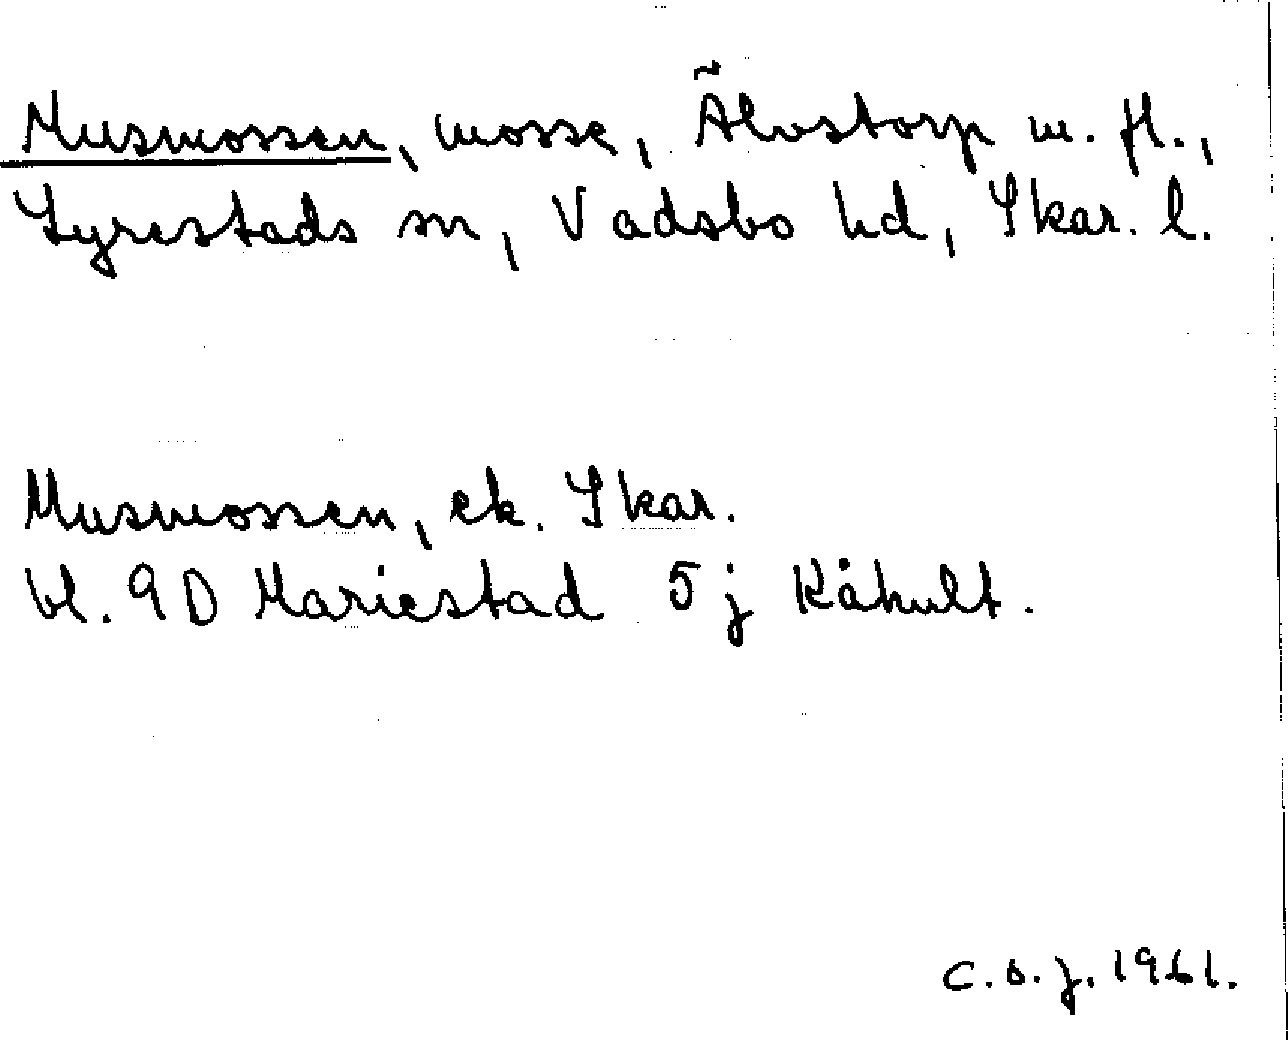 Musmossen, mosse, Älvstorp m. fl.,
Lyrestads sn, Vadsbo hd, Skar. l.
Musmossen, ek. Skar.
bl. 9D Mariestad 5j Kåhult.
C.S.J. 1961.